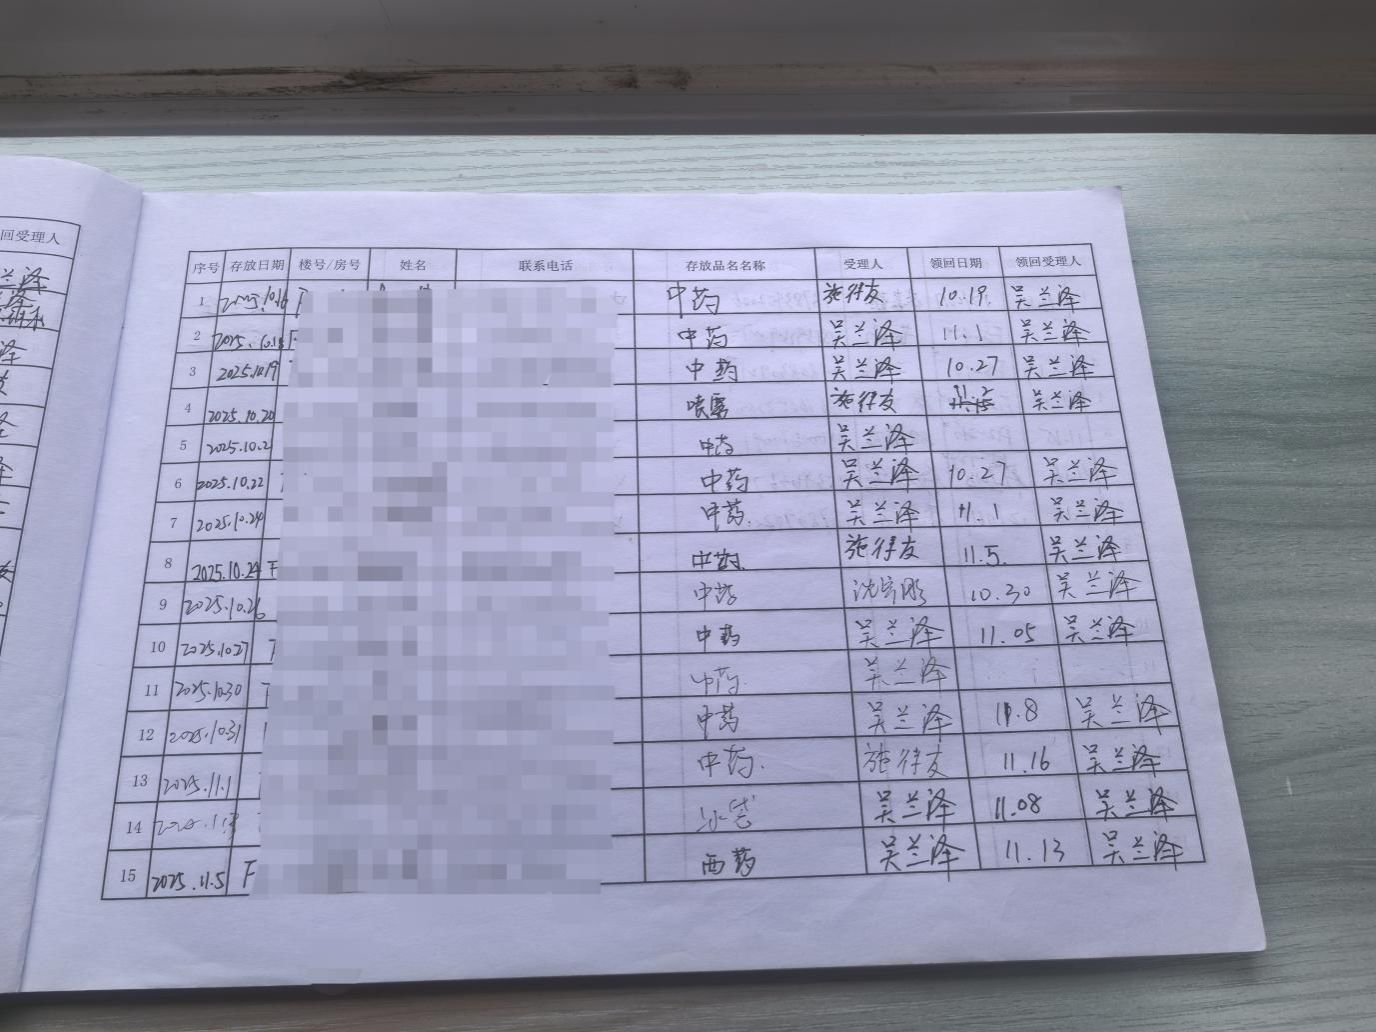 回受理人
兰泽
序号 存放日期 楼号/房号 姓名 联系电话 存放品名名称 受理人 领回日期 领回受理人
1 2025.10.16 中药 施得友 10.19 吴兰泽
2 2025.10.18 中药 吴兰泽 11.1 吴兰泽
3 2025.10.19 中药 吴兰泽 10.27 吴兰泽
4 2025.10.20 喷雾 施得友 11.2 吴兰泽
5 2025.10.21 中药 吴兰泽
6 2025.10.22 中药 吴兰泽 10.27 吴兰泽
7 2025.10.24 中药. 吴兰泽 11.1 吴兰泽
8 2025.10.24 中药 施得友 11.5. 吴兰泽
9 2025.10.26 中药 10.30 吴兰泽
10 2025.10.27 中药 吴兰泽 11.05 吴兰泽
11 2025.10.30 中药. 吴兰泽
12 2025.10.31 中药 吴兰泽 11.8 吴兰泽
13 2025.11.1 中药. 施得友 11.16 吴兰泽
14 冰袋 吴兰泽 11.08 吴兰泽
15 2025.11.5 西药 吴兰泽 11.13 吴兰泽